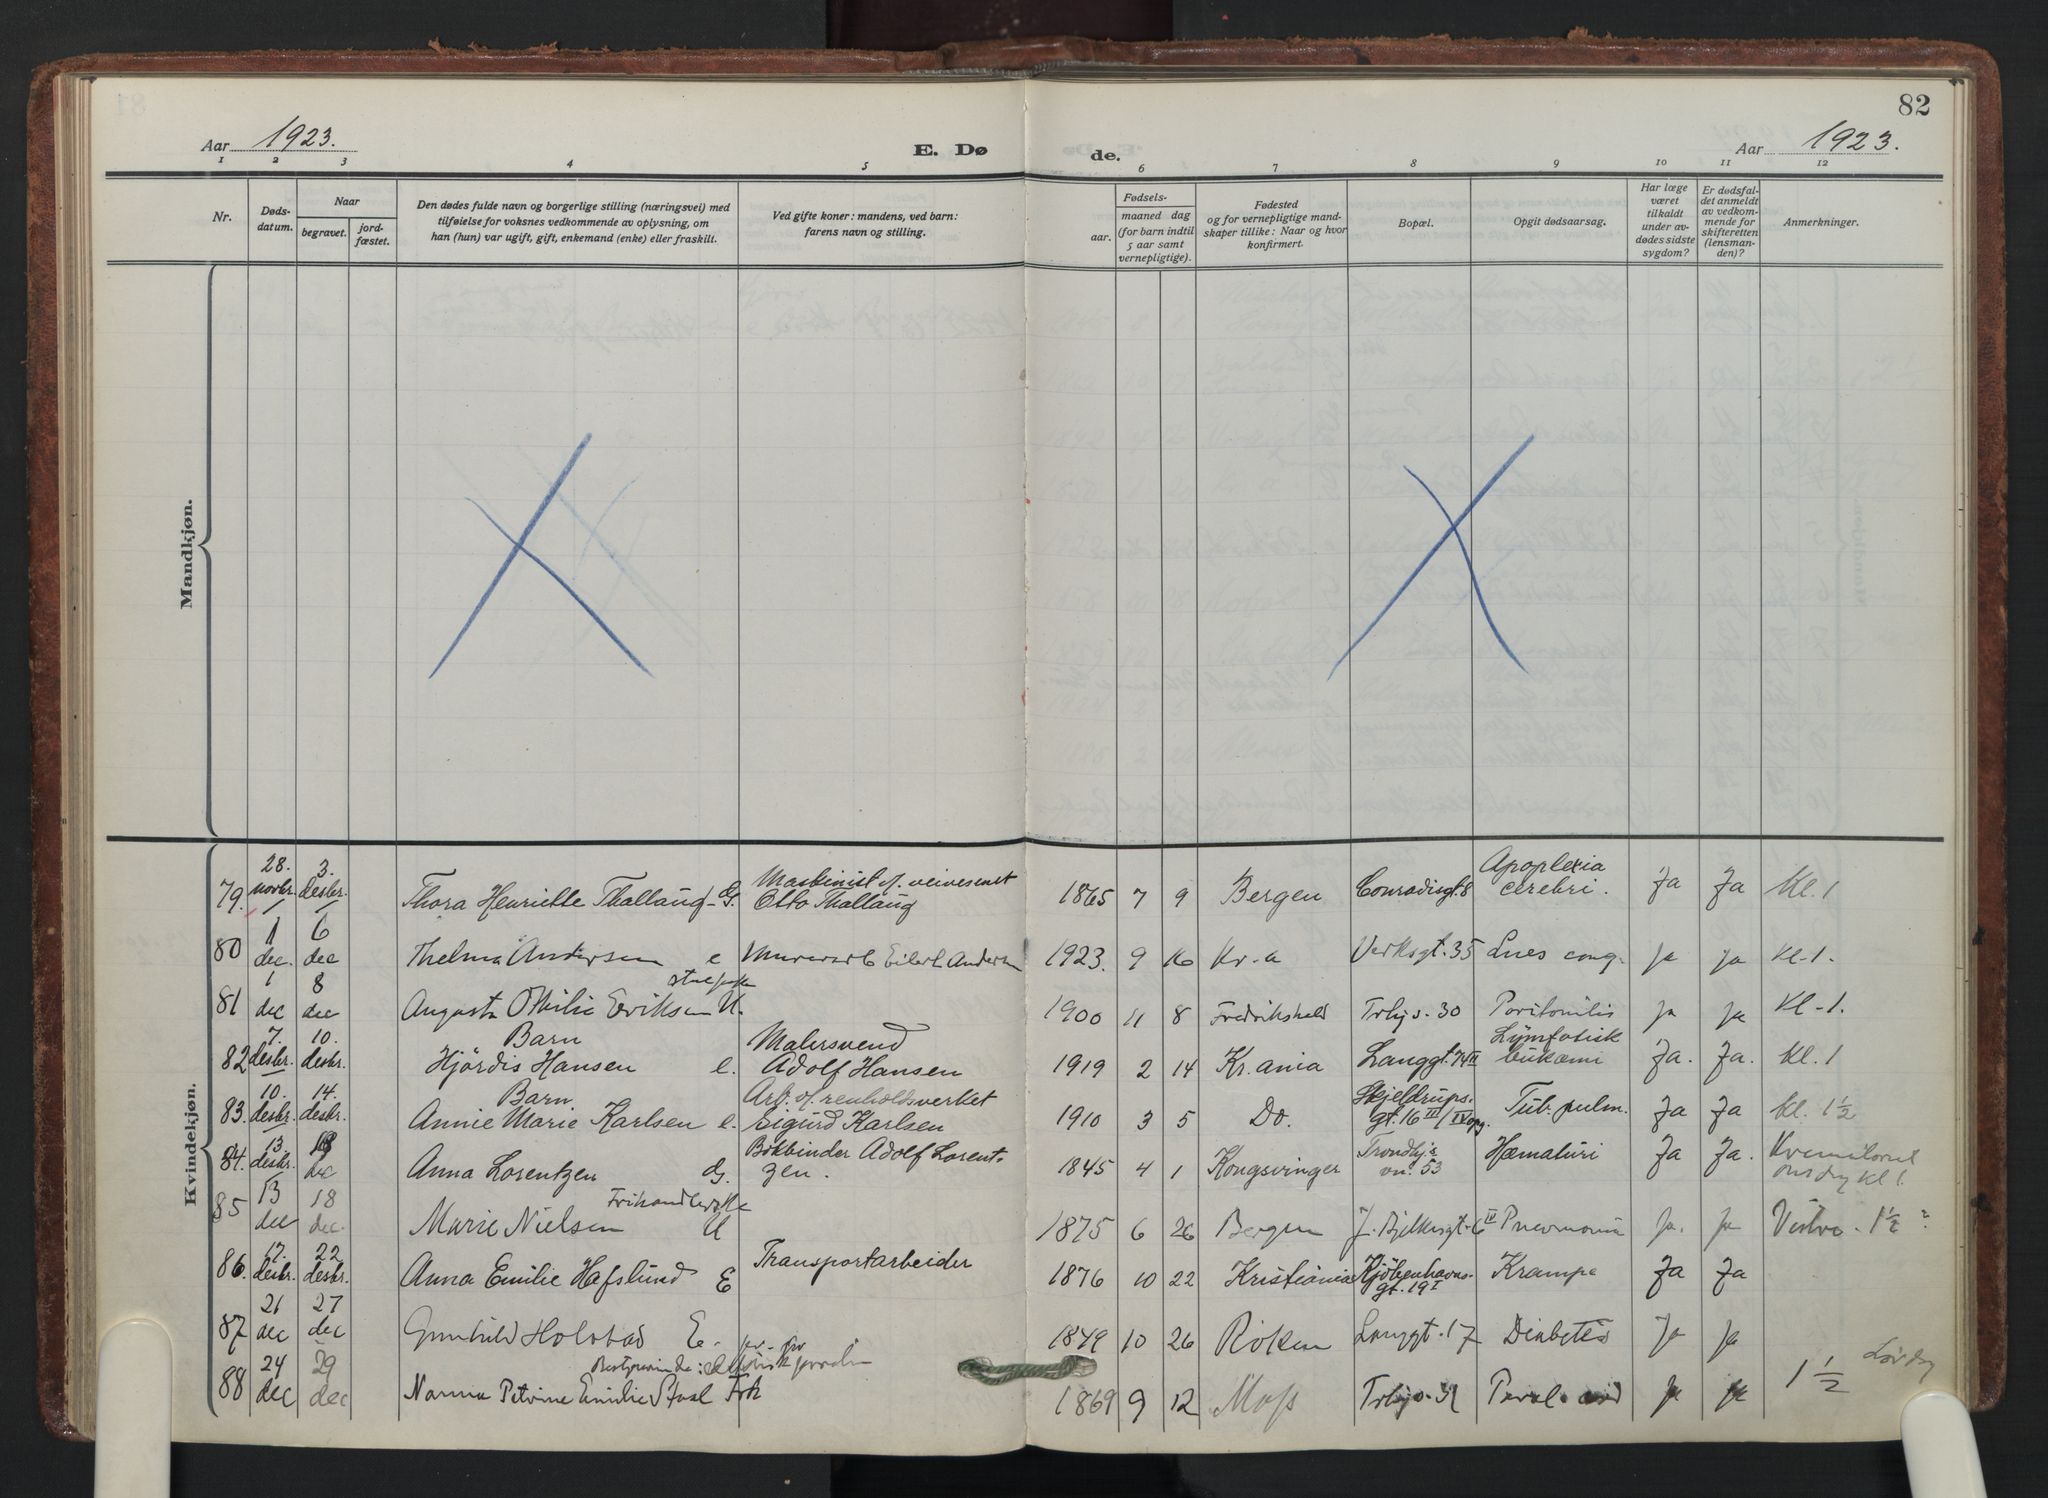 82
Aar 1923. E. Dø de. Aar 1923.
1 2 3 4 5 6 7 8 9 10 11 12
Nr.
Døds-
datum.
Naar
begravet.
jord-
fæstet.
Den dødes fulde navn og borgerlige stilling (næringsvei) med
tilføielse for voksnes vedkommende av oplysning, om
han (hun) var ugift, gift, enkemand (enke) eller fraskilt.
Ved gifte koner: mandens, ved barn:
farens navn og stilling.
Fødsels-
aar.
maaned dag
(for barn indtil
5 aar samt
vernepligtige).
Fødested
og for vernepligtige mand-
skaper tillike: Naar og hvor
konfirmert.
Bopæl.
Opgit dødsaarsag.
Har læge
været
tilkaldt
under av-
dødes sidste
sygdom?
Er dødsfal-
det anmeldt
av vedkom-
mende for
skifteretten
(lensman-
den)?
Anmerkninger.
Mandkjøn.
Kvindekjøn.
28. 3. Maskinist v. veivesenet Apoplexia
79. novbr. desbr. Thora Henriette Thallaug - G. Otto Thallaug 1865 7 9 Bergen Conradisgt. 8 cerebri. Ja Ja Kl. 1
1 6
80 dec. dec Thelma Andersen e Eilert Andersen 1923. 9 16 Kr.a Verksgt. 35 Lues cong. Ja Ja Kl. 1.
1 8
81 dec dec Augusta Othilie Eriksen U. 1900 11 8 Fredrikshald Trhjs. 30 Peritonitis Ja Ja Kl. 1.
7. 10. Barn Malersvend Lymfatisk
82 desbr. desbr. Hjördis Hansen e. Adolf Hansen 1919 2 14 Kr.ania Langgt. 74 II leukæmi Ja. Ja. Kl. 1
10. 14. Barn Arb. v. renholdsverket Skjeldrups.
83. desbr. desbr. Annie Marie Karlsen e. Sigurd Karlsen 1910 3 5 Do. gt. 16 III/IV opg. Tub. pulm. Ja Ja Kl. 1 1/2
13 Bokbinder Adolf Lorent- Trondhj.s
84. desbr. dec Anna Lorentzen G. zen. 1845 4 1 Kongsvinger vn. 53 Hæmaturi Ja Ja. Krematoriet
onsdag kl 1.
13 18
85 dec dec. Marie Nielsen U 1875 6 26 Bergen J. Bjelkesgt. 6 IV Pneumonia Ja. Ja 1 1/2
17. 22 Transportarbeider
86. desbr. desbr. Anna Emilie Hafslund E 1876 10 22 Kristiania Kjöbenhavns-
gt. 19 I Krampe Ja Ja
21 27
87 dec dec Gunhild Holstad E. 1849 10 26 Röken Langgt. 17 Diabetes Ja Ja
24 29 Lørdag
88 dec dec Nanna Petrine Emilie Staal Frk 1869 9 12 Moss Ja Ja 1 1/2